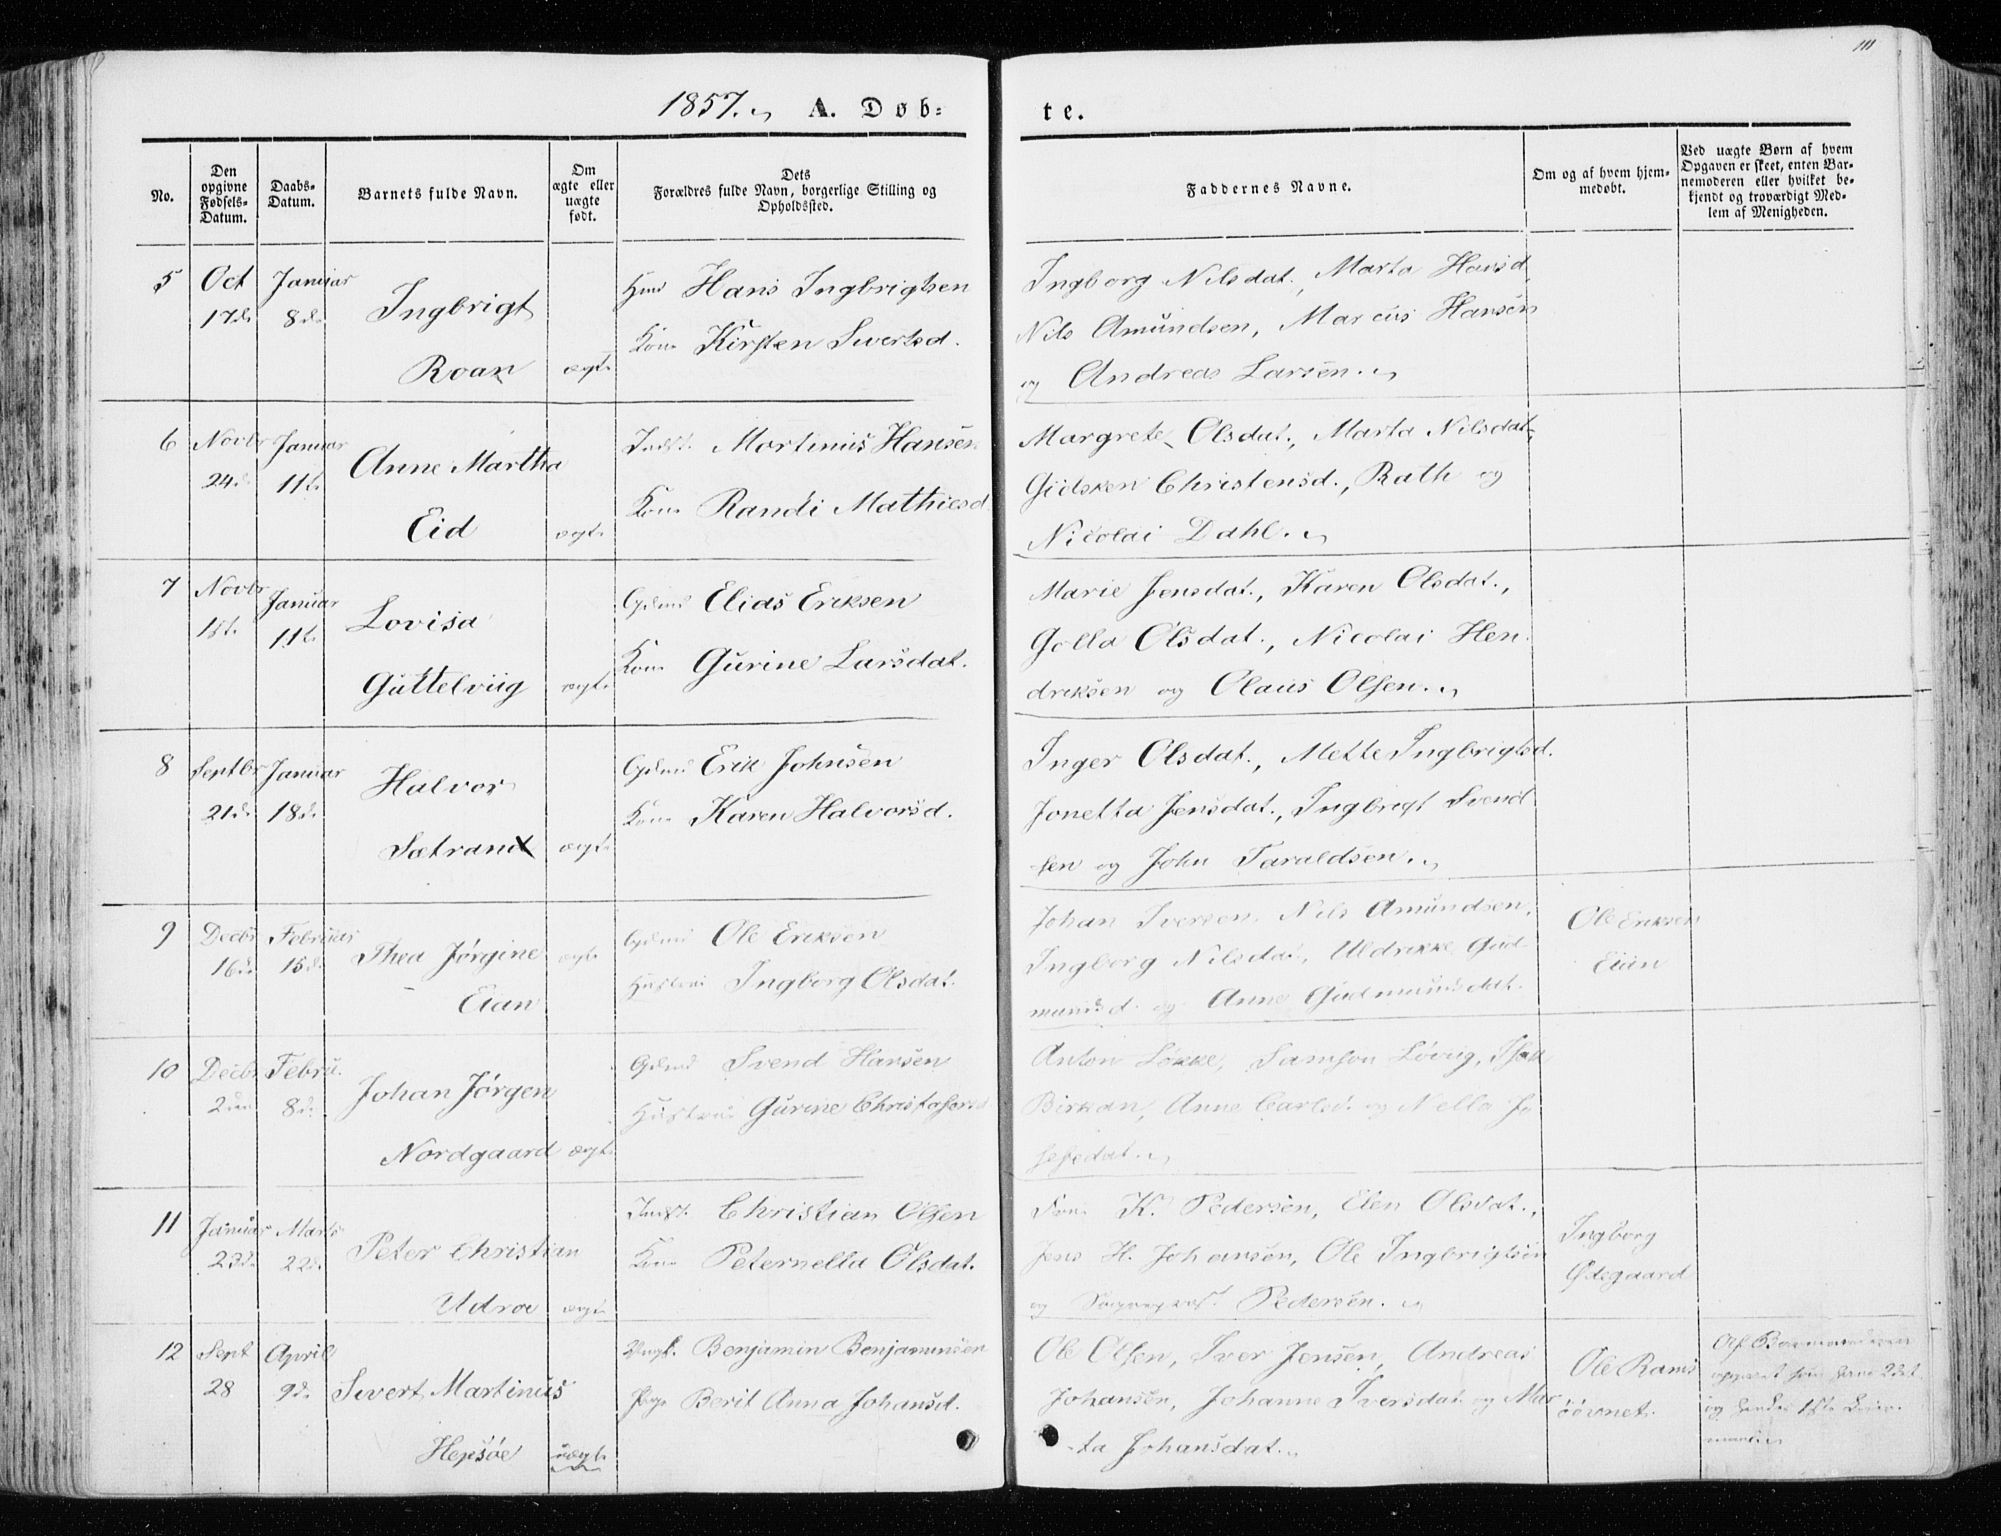 111
1857. A. Døb=
te.
No.
Den opgivne Fødsels-Datum.
Daabs-Datum.
Barnets fulde Navn.
Om ægte eller uægte født.
Dets Forældres fulde Navn, borgerlige Stilling og Opholdssted.
Faddernes Navne.
Om og af hvem hjemmedøbt.
Ved uægte Børn af hvem Opgaven er skeet, enten Barnemoderen eller hvilket bekjendt og troværdigt Medlem af Menigheden.
5 Oct Januar
17de 8de
Ingbrigt
Roan ægte
Hmd Hans Ingbrigtsen
Kone Kirsten Sivertsd.
Ingborg Nilsdat., Marta Hansd,
Nils Amundsen, Marcus Hansen
og Andreas Larsen.
6 Novbr Januar
24de 11te
Anne Martha
Eid ægt.
Indst. Mortinus Hansen
Kone Randi Mathiesd
Margrete Olsdat., Marta Nilsdat.,
Gidsken Christensd., Rath og
Nicolai Dahl.
7 Novbr Januar
18t. 11t.
Lovisa
Guttelviig ægt.
Gdmd Elias Eriksen
Kone Gurine Larsdat.
Marie Jensdat., Karen Olsdat.,
Golla Olsdat., Nicolai Hen
driksen og Olaus Olsen.
8 Septbr Januar
21de 18de
Halvor
Sætrand ægt.
Gdmd Erik Johnsen
Kone Karen Halvorsd.
Inger Olsdat., Mette Ingbrigtsd.
Jonetta Jensdat., Ingbrigt Svend
sen og John Taraldsen.
9 Decbr Februar
16de 15de
Thea Jørgine ægt.
Eian
Gdmd Ole Eriksen
Hustrue Ingborg Olsdat.
Johan Iversen, Nils Amundsen,
Ingborg Nilsdat., Uldrikke Gud
mundsd. og Anne Gudmundsdat.
Ole Eriksen
Eian
10 Decbr Febru.
2den 8de
Johan Jørgen
Nordgaard ægt.
Gdmd Svend Hansen
Hustrue Gurine Christophersd
Anton Løkke, Samson Løviig, Isak
Birkan, Anne Carlsd. og Nella Jo
sefsdat.
11 Januar Marts
23de 22de
Peter Christian
Udroe ægt.
Indst. Christian Olsen
Kone Peternella Olsdat.
K. Pedersen, Elen Olsdat.,
Jens H. Johansen, Ole Ingbrigtsen
og Pedersen.
Ingborg
Ødegaard
12 Sept April
28 9de
Sivert Martinus
Hepsøe uægt.
Ungk. Benjamin Benjaminsen
Pige Berit Anna Johansd.
Ole Olsen, Iver Jensen, Andreas
Johansen, Johanne Iversdat. og Mar
ta Johansdat.
Ole Rams
søvnet.
Af Barnemoderen
opgivet som hans 2det
og hendes 1ste Leier
maal